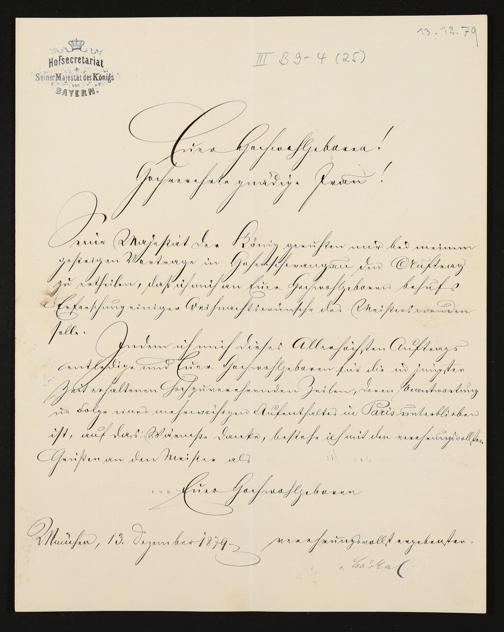 13.12.79
III B 9-4 (25)
Hofsecretariat
Seiner Majestät des Königs
von
BAYERN.
Euer Hochwohlgeboren!
Hochverehrte gnädige Frau!
Seine Majestät der König geruhten mir bei meinem
gestrigen Vortrage in Hohenschwangau den Auftrag
zu ertheilen, daß ich mich an Euer Hochwohlgeboren behufs
Erforschung einiger Weihnachtswünsche des Meisters wenden
solle.
Indem ich mich dieses Allerhöchsten Auftrags
entledige und Euer Hochwohlgeboren für die in jüngster
Zeit erhaltenen hochzuverehrenden Zeilen, deren Beantwortung
in Folge eines mehrwöchigen Aufenthaltes in Paris unterblieben
ist, auf das Wärmste danke, bestehe ich mit den verehrungsvollsten
Grüßen an den Meister als
Euer Hochwohlgeboren
München, 13. Dezember 1879. verehrungsvollst ergebenster.